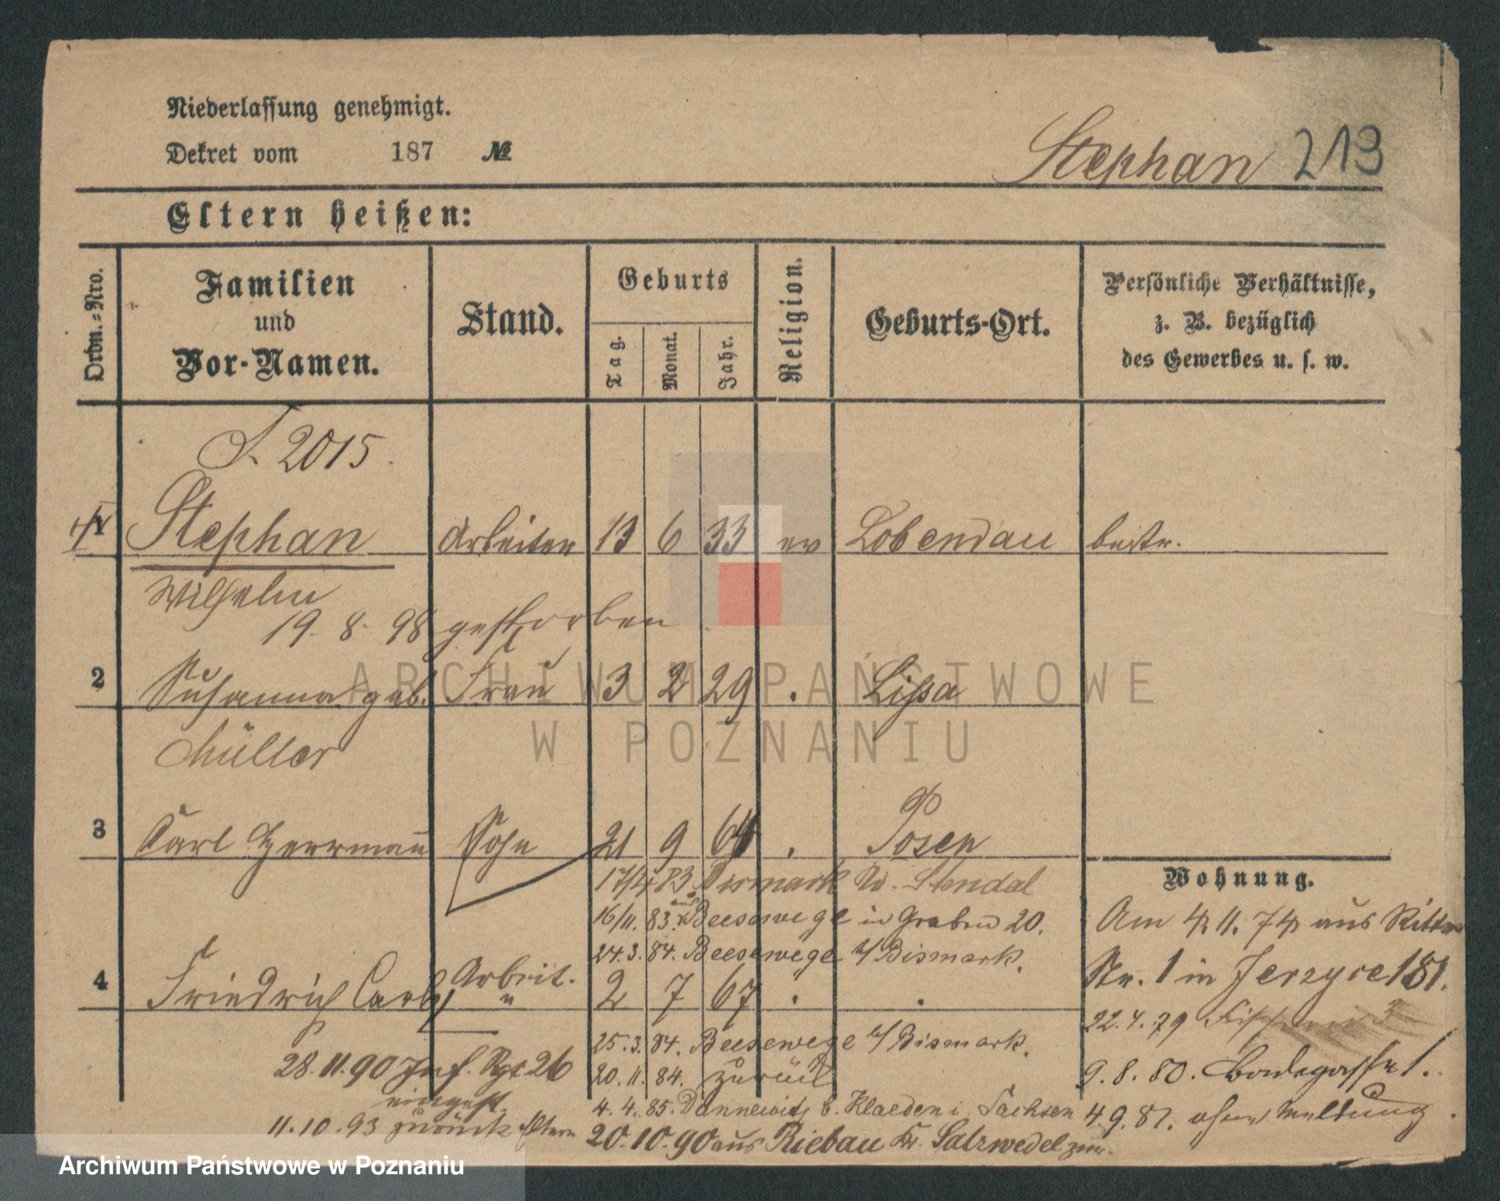 Niederlassung genehmigt.
Dekret vom 187 №
Stephan 213
Eltern heißen:
Ordn.-Nro.
Familien und Vor-Namen.
Stand.
Geburts
Tag.
Monat.
Jahr.
Religion.
Geburts-Ort.
Persönliche Verhältnisse, z. B. bezüglich des Gewerbes u. s. w.
J. 2015.
1 Stephan Arbeiter 13 6 33 ev Lobendau bestr.
Wilhelm
19. 8. 98 gestorben
2 Susanna geb. Frau 3 2 29 . Lissa
Müller
3 Carl Herrmann Sohn 21 9 64 . Posen
17/4 83 Bismark Kr. Stendal
Wohnung.
16/11. 83. aus Beesewege in Graben 20.
Am 4 11. 74 aus Ritter
24.3. 84. Beesewege b/Bismark.
Str. 1 in Jerzyce 181.
4 Friedrich Carl Arbeit. " 2 7 67 . .
22.4.79
25.3. 84. Beesewege b/Bismark.
28.11.90 Inf. Rgt 26
eingest.
20.11.84. zurück
9.8.80. 1.
4.4.85. Dannewitz b. Klaeden i. Sachsen
4.9.81. ohne Meldung
11.10.93 zurück Eltern
20.10.90 aus Riebau Kr. Salzwedel zur.
ARCHIWUM PAŃSTWOWE
W POZNANIU
Archiwum Państwowe w Poznaniu